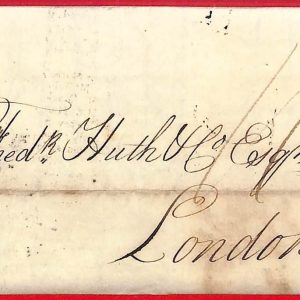 Fredk Huth & Co Esqrs
London